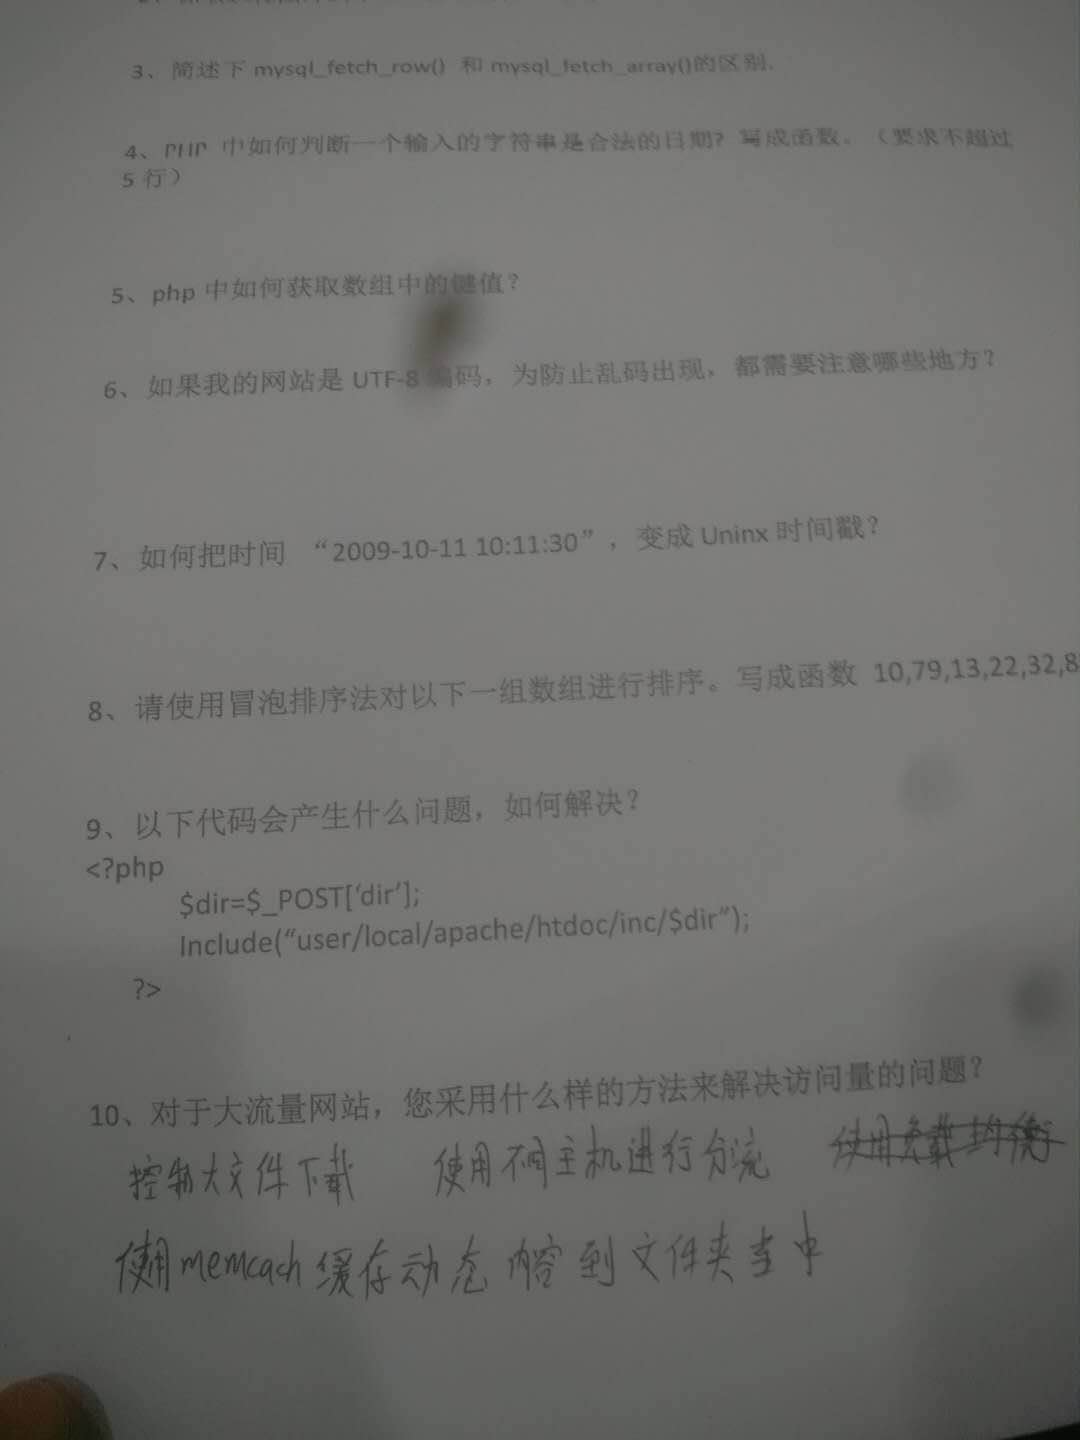 3、简述下 mysql_fetch_row() 和 mysql_fetch_array()的区别.
4、PHP 中如何判断一个输入的字符串是合法的日期？写成函数。（要求不超过
5 行）
5、php 中如何获取数组中的键值？
6、如果我的网站是 UTF-8 编码，为防止乱码出现，都需要注意哪些地方？
7、如何把时间 “2009-10-11 10:11:30”，变成 Uninx 时间戳？
8、请使用冒泡排序法对以下一组数组进行排序。写成函数 10,79,13,22,32,8
9、以下代码会产生什么问题，如何解决？
<?php
$dir=$_POST[‘dir’];
Include(“user/local/apache/htdoc/inc/$dir”);
?>
10、对于大流量网站，您采用什么样的方法来解决访问量的问题？
控制大文件下载 使用不同主机进行分流 使用负载均衡
使用memcach缓存动态内容到文件夹当中